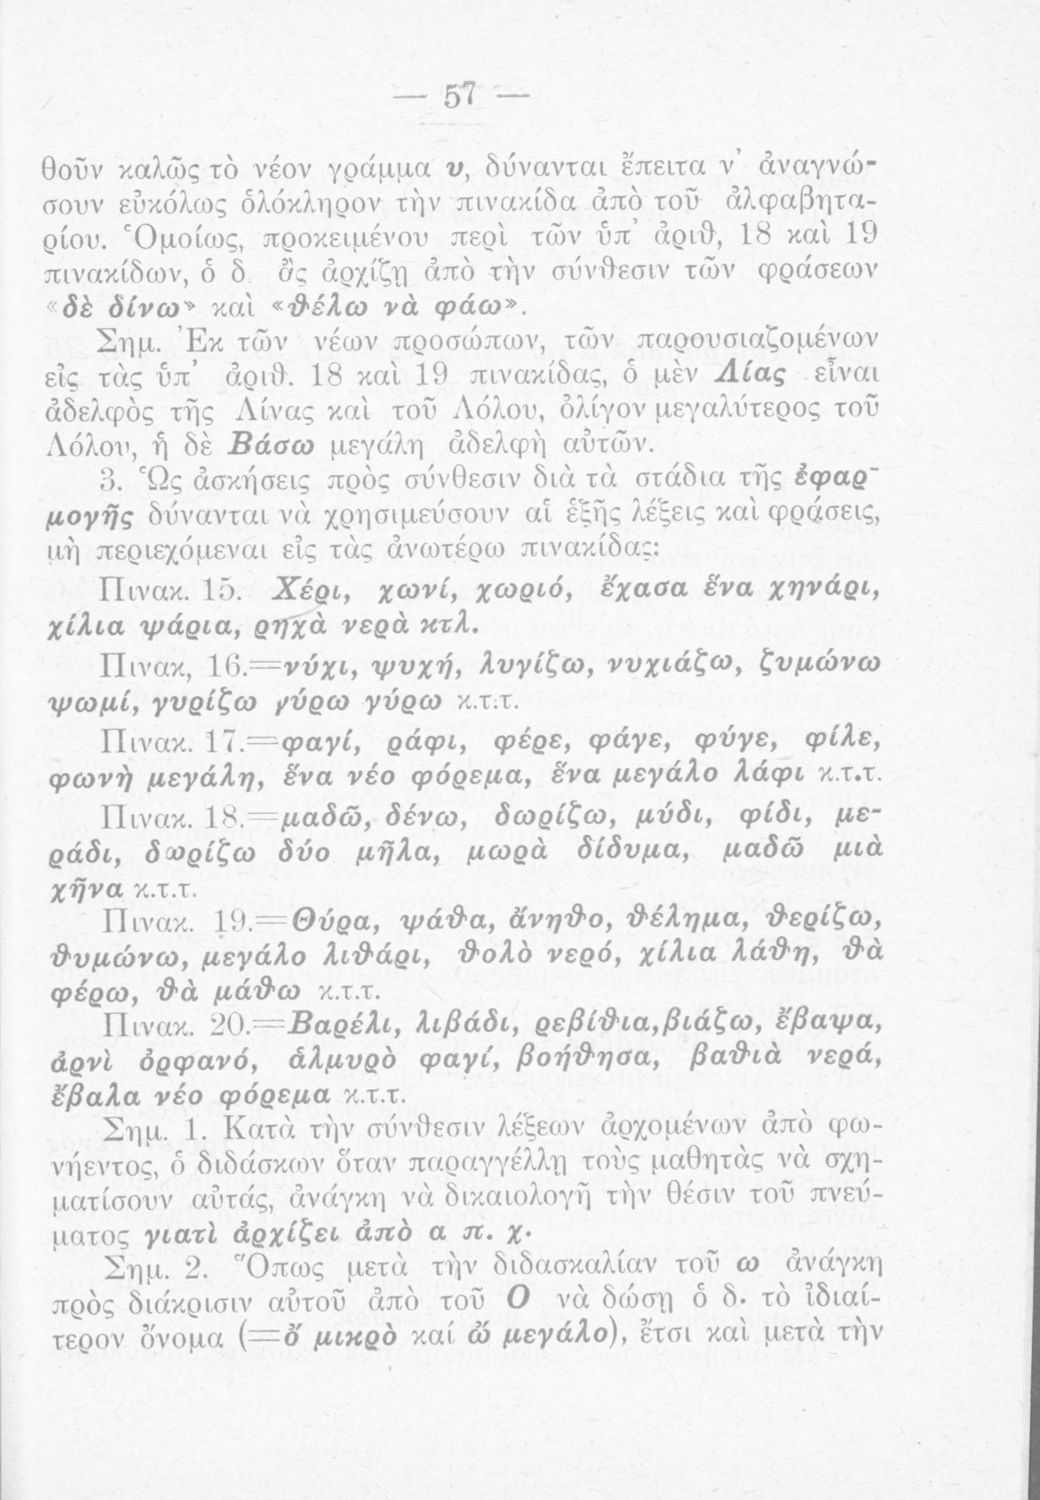 — 57 —
θοῦν καλῶς τὸ νέον γράμμα υ, δύνανται ἔπειτα ν’ ἀναγνώ-
σουν εὐκόλως ὁλόκληρον τὴν πινακίδα ἀπὸ τοῦ ἀλφαβητα-
ρίου. Ὁμοίως, προκειμένου περὶ τῶν ὑπ’ ἀριθ, 18 καὶ 19
πινακίδων, ὁ δ. ἂς ἀρχίζῃ ἀπὸ τὴν σύνθεσιν τῶν φράσεων
«δὲ δίνω» καὶ «θέλω νὰ φάω».
Σημ. Ἐκ τῶν νέων προσώπων, τῶν παρουσιαζομένων
εἰς τὰς ὑπ’ ἀριθ. 18 καὶ 19 πινακίδας, ὁ μὲν Λίας εἶναι
ἀδελφὸς τῆς Λίνας καὶ τοῦ Λόλου, ὀλίγον μεγαλύτερος τοῦ
Λόλου, ἡ δὲ Βάσω μεγάλη ἀδελφὴ αὐτῶν.
3. Ὡς ἀσκήσεις πρὸς σύνθεσιν διὰ τὰ στάδια τῆς ἐφαρ-
μογῆς δύνανται νὰ χρησιμεύσουν αἱ ἑξῆς λέξεις καὶ φράσεις,
μὴ περιεχόμεναι εἰς τὰς ἀνωτέρω πινακίδας:
Πινακ. 15. Χέρι, χωνί, χωριό, ἔχασα ἕνα χηνάρι,
χίλια ψάρια, ρηχὰ νερὰ κτλ.
Πινακ, 16.=νύχι, ψυχή, λυγίζω, νυχιάζω, ζυμώνω
ψωμί, γυρίζω γύρω γύρω κ.τ.τ.
Πινακ. 17.=φαγί, ράφι, φέρε, φάγε, φύγε, φίλε,
φωνὴ μεγάλη, ἕνα νέο φόρεμα, ἕνα μεγάλο λάφι κ.τ.τ.
Πινακ. 18.=μαδῶ, δένω, δωρίζω, μύδι, φίδι, με-
ράδι, δωρίζω δύο μῆλα, μωρὰ δίδυμα, μαδῶ μιὰ
χῆνα κ.τ.τ.
Πινακ. 19.=Θύρα, ψάθα, ἄνηθο, θέλημα, θερίζω,
θυμώνω, μεγάλο λιθάρι, θολὸ νερό, χίλια λάθη, θὰ
φέρω, θὰ μάθω κ.τ.τ.
Πινακ. 20.=Βαρέλι, λιβάδι, ρεβίθια,βιάζω, ἔβαψα,
ἀρνὶ ὀρφανό, ἁλμυρὸ φαγί, βοήθησα, βαθιὰ νερά,
ἔβαλα νέο φόρεμα κ.τ.τ.
Σημ. 1. Κατὰ τὴν σύνθεσιν λέξεων ἀρχομένων ἀπὸ φω-
νήεντος, ὁ διδάσκων ὅταν παραγγέλλῃ τοὺς μαθητὰς νὰ σχη-
ματίσουν αὐτάς, ἀνάγκη νὰ δικαιολογῇ τὴν θέσιν τοῦ πνεύ-
ματος γιατὶ ἀρχίζει ἀπὸ α π. χ.
Σημ. 2. Ὅπως μετὰ τὴν διδασκαλίαν τοῦ ω ἀνάγκη
πρὸς διάκρισιν αὐτοῦ ἀπὸ τοῦ Ο νὰ δώσῃ ὁ δ. τὸ ἰδιαί-
τερον ὄνομα (=ὄ μικρὸ καί ὤ μεγάλο), ἔτσι καὶ μετὰ τὴν